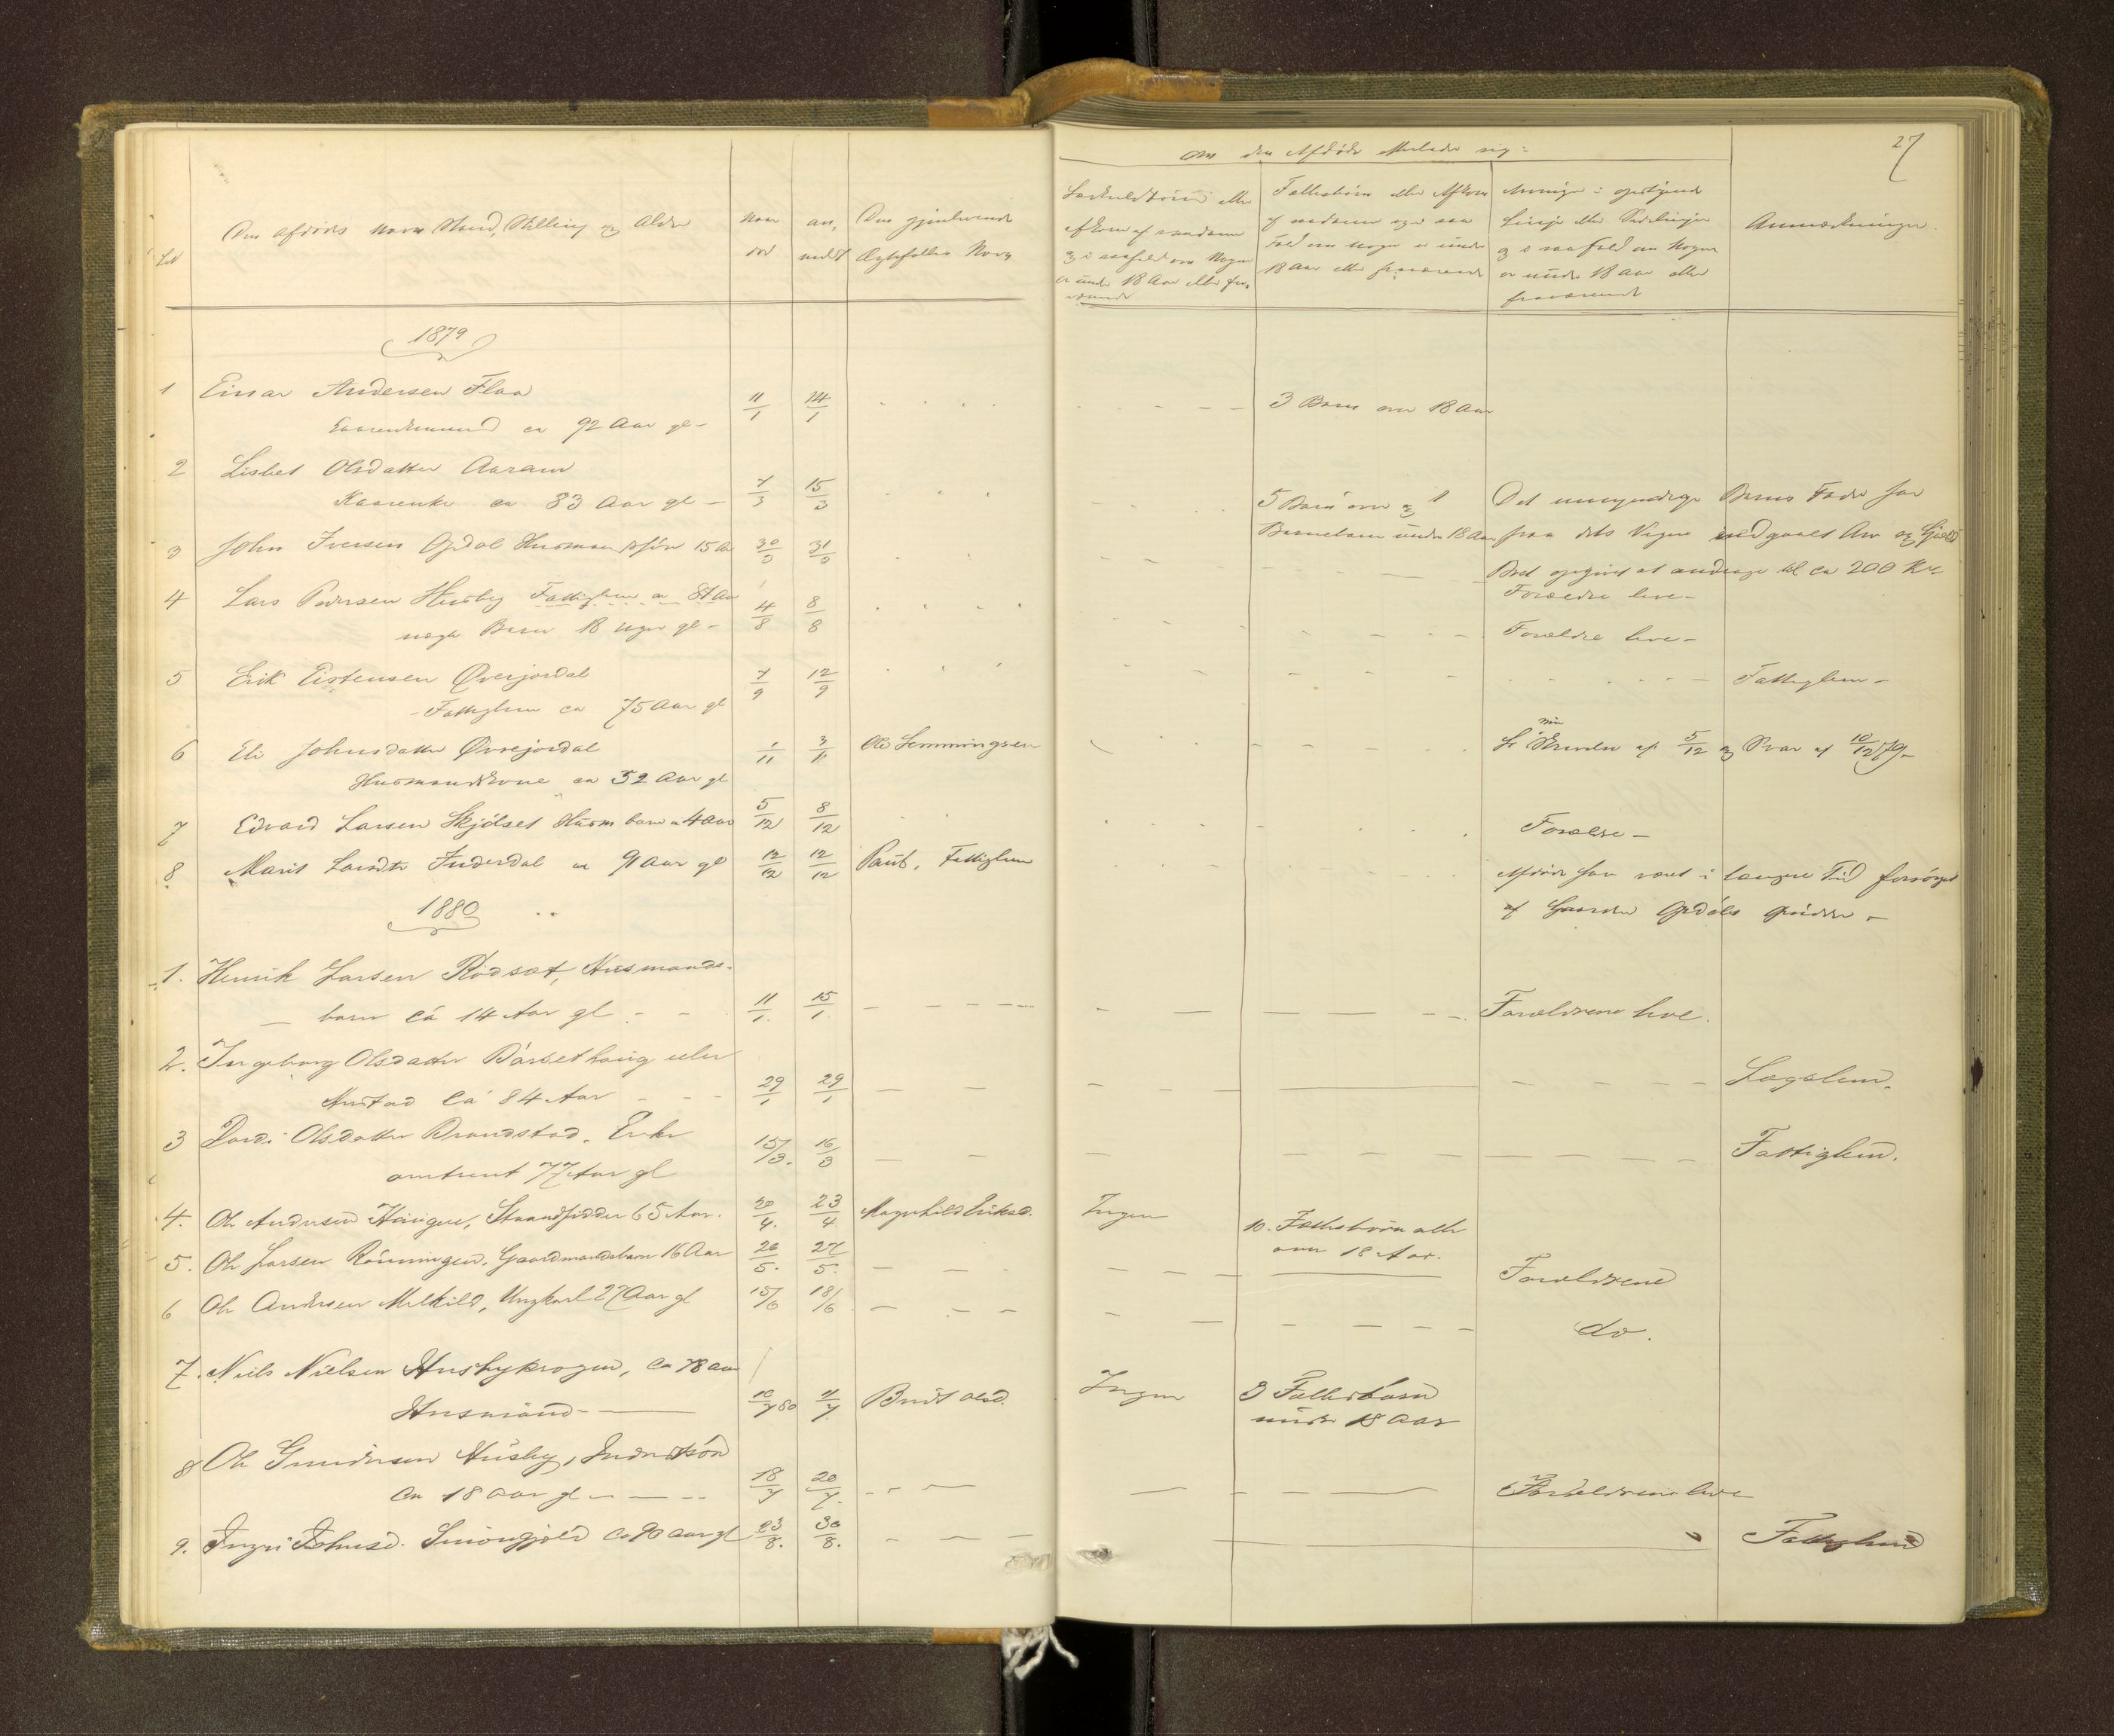 27
Om den Afdøde efterlader sig:
Ld
Den afdødes Navn Stand, Stilling og Alder
Naar død
an, meldt
Den gjenlevende
Ægtefælles Navn
Særkuldbørn eller
Afkom af saadanne
og i saafald om Nogen
er under 18 Aar eller fra-
værende
Fællesbørn eller Afkom
af saadanne og i saa
Fald om nogen er under
18 Aar eller fraværende
Arvinger i opstigende
Linje eller Sidelinjer
og i saafald om Nogen
er under 18 Aar eller
fraværende
Anmærkninger.
1879
1 Einar Andersen Flaa 11/1 14/1
ca 92 Aar gl - 3 Børn over 18 Aar
2 Lisbet Olsdatter Aaram
Kaarenke ca 83 Aar gl - 7/3 15/3 5 Børn over og 1 Det umyndige Barns Fader har
Barnebarn under 18 Aar paa dets Vegne vedgaaet Arv og Gjæld
3 John Iversen Opdøl Husmandssøn 15 Aar 30/3 31/3
Boet opgivet at andrage til ca 200 Kr
Forældre leve -
4 Lars Pedersen Husby Fattiglem ca 81 Aar 4/8 8/8
Barn 18 uger gl - Forældre leve -
5 Erik Eistensen Øverjordal 7/9 12/9 Fattiglem -
- Fattiglem ca 75 Aar gl
6 Eli Johnsdatter Øvrejordal 1/11 3/11 Ole Lemmingsen
Se min Skrivelse af 5/12 og Svar af 10/12 79 -
Husmandskone ca 52 Aar gl
7 Edvard Larsen Skjölset Husm barn ca 4 Aar 5/12 8/12 Forældre -
8 Marit Larsdtr Inderdal ca 91 Aar gl 12/12 12/12 Fattiglem
Afdøde har været i længere Tid forsörget
af Gaarden Opdöls
1880
1. Henrik Larsen Rödsæt, Husmands-
barn ca 14 Aar gl - - 11/1. 15/1. Forældrene leve.
2. Ingeborg Olsdatter Bårsethaug eller
ca 84 Aar - - - 29/1 29/1 Lægslem.
3 Dordi Olsdatter Brandstad. Enke 15/3. 16/3 Fattiglem.
omtrent 77 Aar gl
4. Ole Andersen Haugen, Strandsidder 65 Aar. 20/4. 23/4. Magnhild Eriksd. Ingen 10. Fællesbörn alle
over 18 Aar.
5. Ole Larsen Rönningen, Gaardmandsbarn 16 Aar 26/5. 27/5. Forældrene
6 Ole Andersen Melkild, Ungkarl 27 Aar gl 15/6 18/6 do.
7. Niels Nielsen Husbykrogen, ca 78 aar
Husmand - 10/7 80 11/7. Olsd. Ingen 3 Fællesbørn
under 18 Aar
8 Ole Gundersen Husby,
ca 18 aar gl - 18/7 20/7. Forældrene leve
9. Ingri Johnsd. ca 90 aar gl 23/8. 30/8. Fattiglem